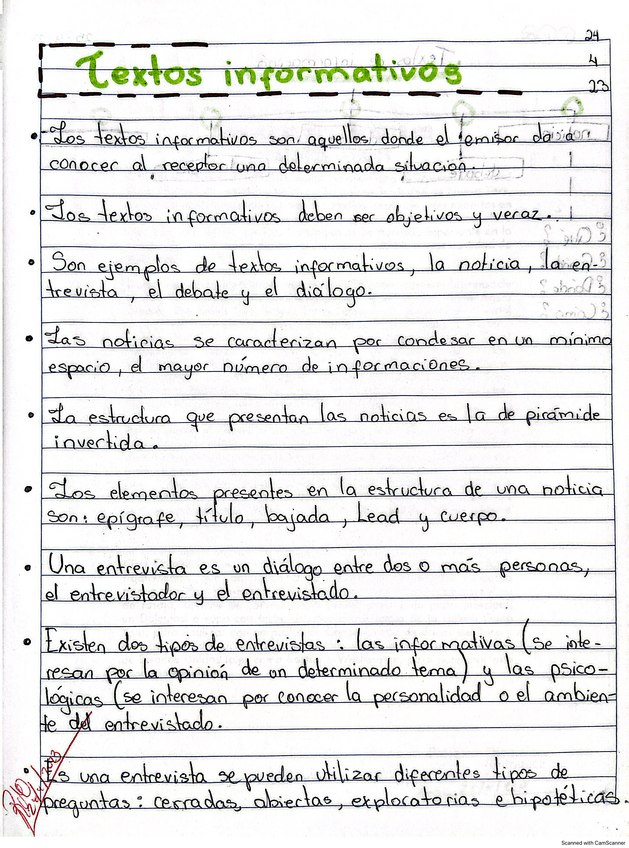 24
4
23
Textos informativos
• Los textos informativos son aquellos donde el emisor da a
conocer al receptor una determinada situación.
• Los textos informativos deben ser objetivos y veraz.
• Son ejemplos de textos informativos, la noticia, la en-
trevista, el debate y el diálogo.
• Las noticias se caracterizan por condesar en un mínimo
espacio, el mayor número de informaciones.
• La estructura que presentan las noticias es la de pirámide
invertida.
• Los elementos presentes en la estructura de una noticia
son: epígrafe, título, bajada, Lead y cuerpo.
• Una entrevista es un diálogo entre dos o más personas,
el entrevistador y el entrevistado.
• Existen dos tipos de entrevistas: las informativas (se inte-
resan por la opinión de un determinado tema) y las psico-
lógicas (se interesan por conocer la personalidad o el ambien-
te del entrevistado.
• Es una entrevista se pueden utilizar diferentes tipos de
preguntas: cerradas, abiertas, exploratorias e hipotéticas.
Scanned with CamScanner